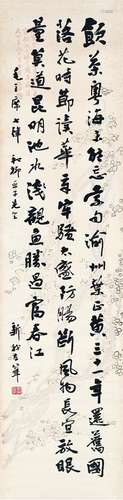 飲茶粵海未能忘索句渝州葉正黃三十一年還舊國
落花時節讀華章牢騷太盛防腸斷風物長宜放眼
量莫道昆明池水淺觀魚勝過富春江
毛主席七律 和柳亞子先生 新我左筆